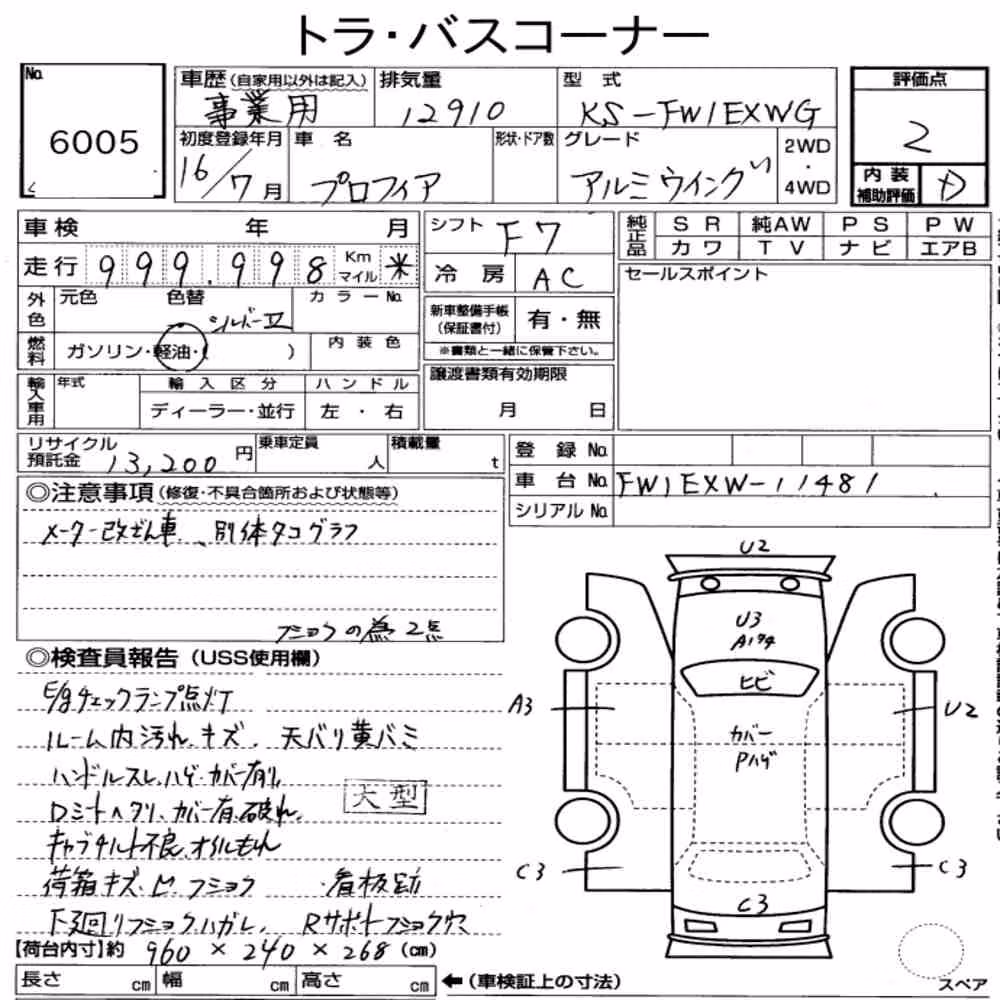 トラ・バスコーナー
No.
6005
車歴(自家用以外は記入)
事業用
排気量
12910
型式
KS-FW1EXWG
評価点
2
初度登録年月
16/7月
車名
プロフィア
形状・ドア数
グレード
アルミウイング
2WD
・
4WD
内装
補助評価
D
車検 年 月
走行 999.998 Km マイル 米
シフト F7
冷房 AC
純正品
SR 純AW PS PW
カワ TV ナビ エアB
セールスポイント
外色
元色 色替 カラーNo.
シルバー
新車整備手帳
(保証書付)
有・無
※書類と一緒に保管下さい。
燃料
ガソリン・軽油・( )
内装色
輸入車用
年式
輸入区分
ディーラー・並行
ハンドル
左・右
譲渡書類有効期限
月 日
リサイクル
預託金 13,200円
乗車定員
人
積載量
t
登録No.
車台No. FW1EXW-11481
シリアルNo.
◎注意事項(修復・不具合箇所および状態等)
メーター改ざん車、別体タコグラフ
フショクの為2点
◎検査員報告(USS使用欄)
E/gチェックランプ点灯
ルーム内汚れ、キズ、天バリ黄バミ
ハンドルスレ、ハゲ・カバー有り
Dシートヘタリ、カバー有、破れ
キャブチルト不良、オイルもれ
大型
荷箱キズ、ヒ、フショク、看板跡
下廻リフショク、ハガレ、Rサポートフショク穴
【荷台内寸】約 960×240×268(cm)
長さ cm 幅 cm 高さ cm ←(車検証上の寸法)
U2
U3
A1タチ
ヒビ
A3
U2
カバー
Pハゲ
C3
C3
C3
スペア